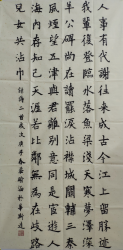 人事有代謝往來成古今江山留勝跡
我輩復登臨水落魚梁淺天寒夢澤深
羊公碑尚在讀罷淚沾襟城闕輔三秦
風煙望五津與君離別意同是宦遊人
海內存知己天涯若比鄰無為在歧路
兒女共沾巾
二首歲次庚子春